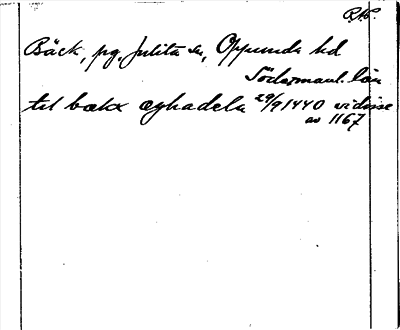 RAP.
Bäck, pg, Julita sn, Oppunda hd
Södermanl. län
til bækx æghadela 29/9 1440 vidisse
av 1167